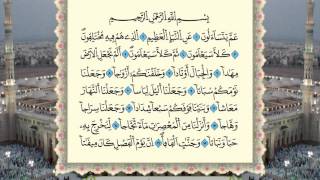 بِسْمِ اللَّهِ الرَّحْمَٰنِ الرَّحِيمِ
عَمَّ يَتَسَاءَلُونَ عَنِ النَّبَإِ الْعَظِيمِ الَّذِي هُمْ فِيهِ مُخْتَلِفُونَ
كَلَّا سَيَعْلَمُونَ ثُمَّ كَلَّا سَيَعْلَمُونَ أَلَمْ نَجْعَلِ الْأَرْضَ
مِهَادًا وَالْجِبَالَ أَوْتَادًا وَخَلَقْنَاكُمْ أَزْوَاجًا وَجَعَلْنَا
نَوْمَكُمْ سُبَاتًا وَجَعَلْنَا اللَّيْلَ لِبَاسًا وَجَعَلْنَا النَّهَارَ
مَعَاشًا وَبَنَيْنَا فَوْقَكُمْ سَبْعًا شِدَادًا وَجَعَلْنَا سِرَاجًا
وَهَّاجًا وَأَنْزَلْنَا مِنَ الْمُعْصِرَاتِ مَاءً ثَجَّاجًا لِنُخْرِجَ بِهِ
حَبًّا وَنَبَاتًا وَجَنَّاتٍ أَلْفَافًا إِنَّ يَوْمَ الْفَصْلِ كَانَ مِيقَاتًا